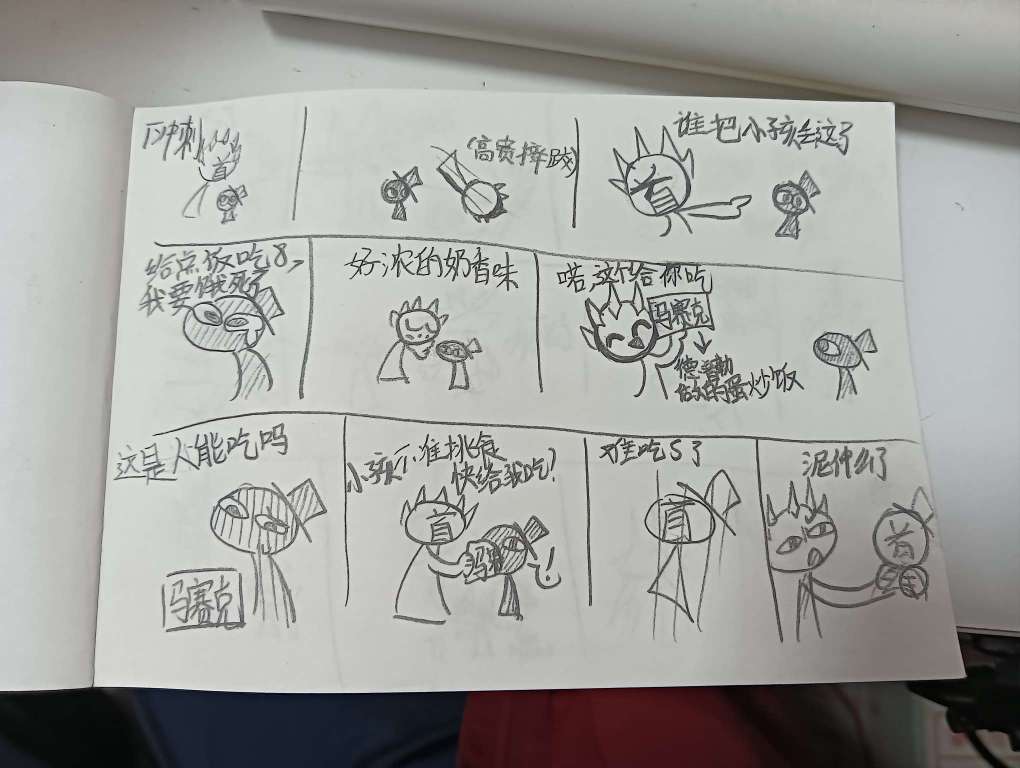 冲刺
首
(高贵摔跤)
谁把小孩丢这了
首
给点饭吃8,
我要饿死了
好浓的奶香味
喏,这个给你吃
马赛克
蛋炒饭
这是人能吃吗
马赛克
小孩不准挑食
快给我吃!
首
马赛
难吃S了
首
泥什么了
首